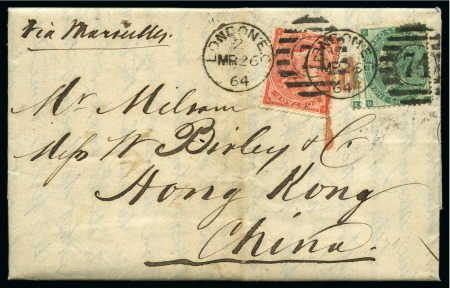 Via Marseilles.
LONDON E.C
2
MR 26
64
74
MR 26
64
74
Mr Milsom
Mess W Birley & Co
Hong Kong
China.